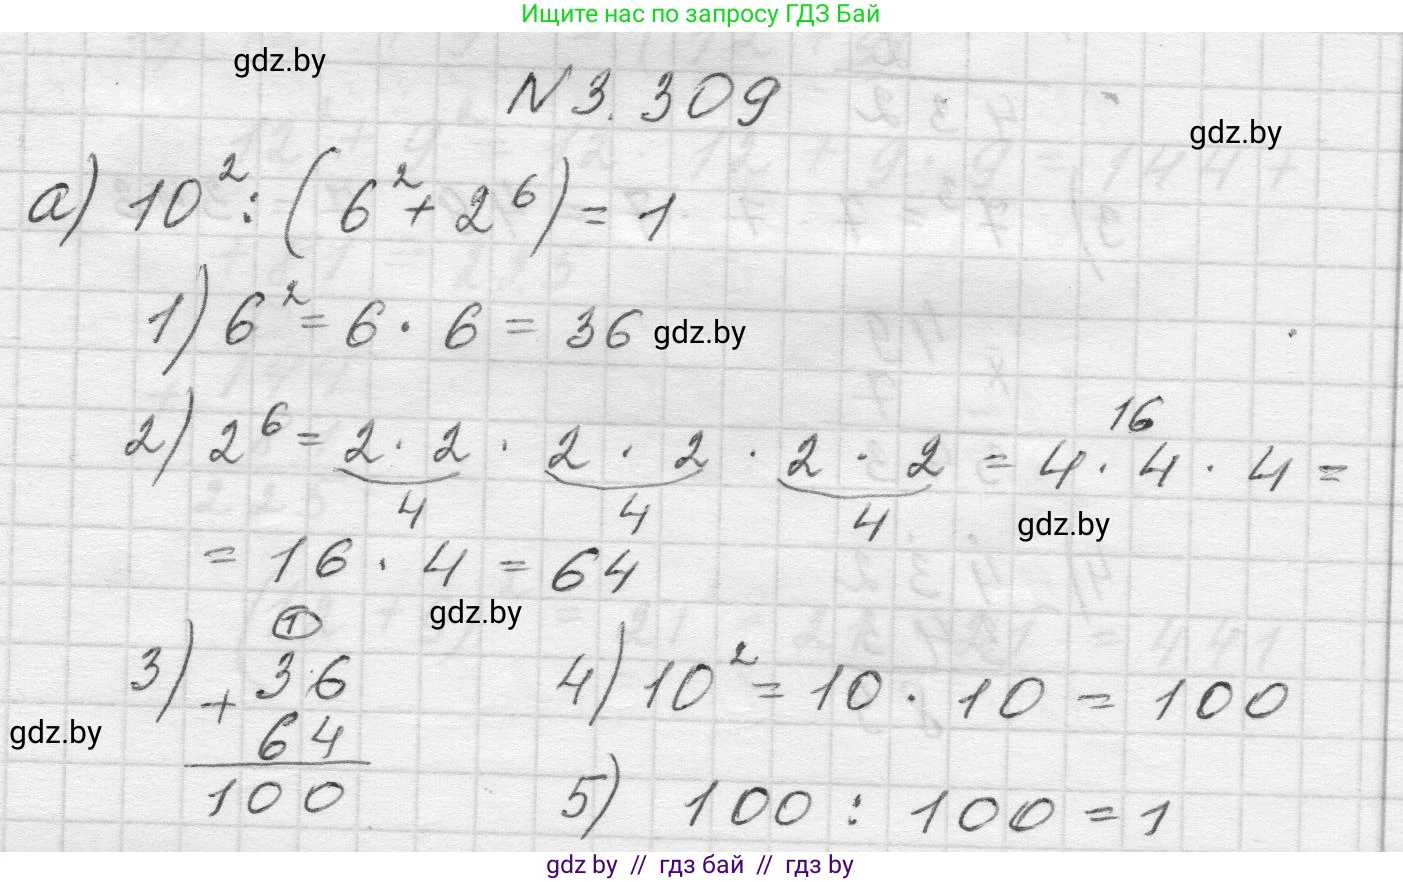 Ищите нас по запросу ГДЗ Бай
gdz.by
N 3.309
gdz.by
а) 10² : (6² + 2⁶) = 1
1) 6² = 6 · 6 = 36
gdz.by
16
2) 2⁶ = 2 · 2 · 2 · 2 · 2 · 2 = 4 · 4 · 4 =
4 4 4
gdz.by
= 16 · 4 = 64
gdz.by
1
3) 36
+ 64
100
4) 10² = 10 · 10 = 100
gdz.by
5) 100 : 100 = 1
gdz by // гдз бай // гдз by